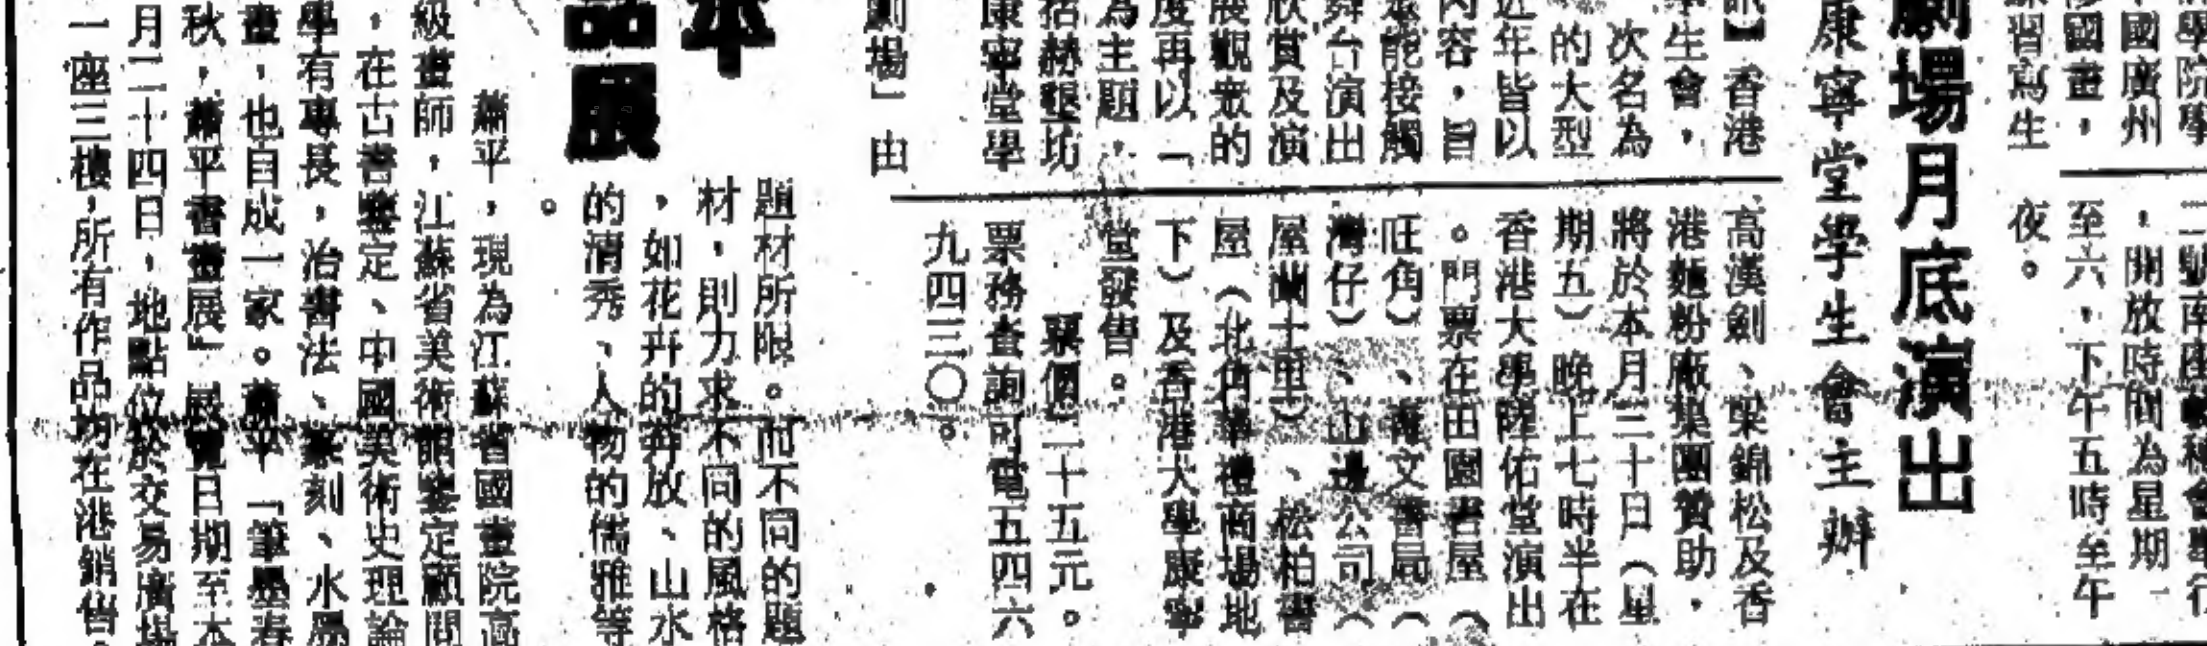 學院學
國廣州
國畫，
習寫生
，開放時間為星期一
至六，下午五時至午
夜。
劇場月底演出
康寧堂學生會主辦
訊】香港
學生會，
次名為
的大型
近年皆以
內容，旨
眾能接觸
舞台演出
欣賞及演
展觀眾的
度再以「
為主題，
括赫墾坊
康寧堂學
劇場」由
高漢釗、梁錦松及香
港麵粉廠集團贊助，
將於本月三十日（星
期五）晚上七時半在
香港大學陸佑堂演出
。門票在田園書屋（
旺角）、南文書局（
灣仔）、山邊公司（
屋蘭士里）、松柏書
屋（北角華禮商場地
下）及香港大學康寧
堂發售。
票價二十五元。
票務查詢可電五四六
九四三〇。
本
品展
題材所限。而不同的題
材，則力求不同的風格
，如花卉的奔放、山水
的清秀、人物的儒雅等
。
蕭平，現為江蘇省國畫院高
級畫師，江蘇省美術館鑒定顧問
，在古書鑒定、中國美術史理論
學有專長，治書法、篆刻、水
畫，也自成一家。蕭平「筆墨春
秋，蕭平書畫展」展覽日期至本
月二十四日，地點位於交易廣場
一座三樓，所有作品均在港銷售。